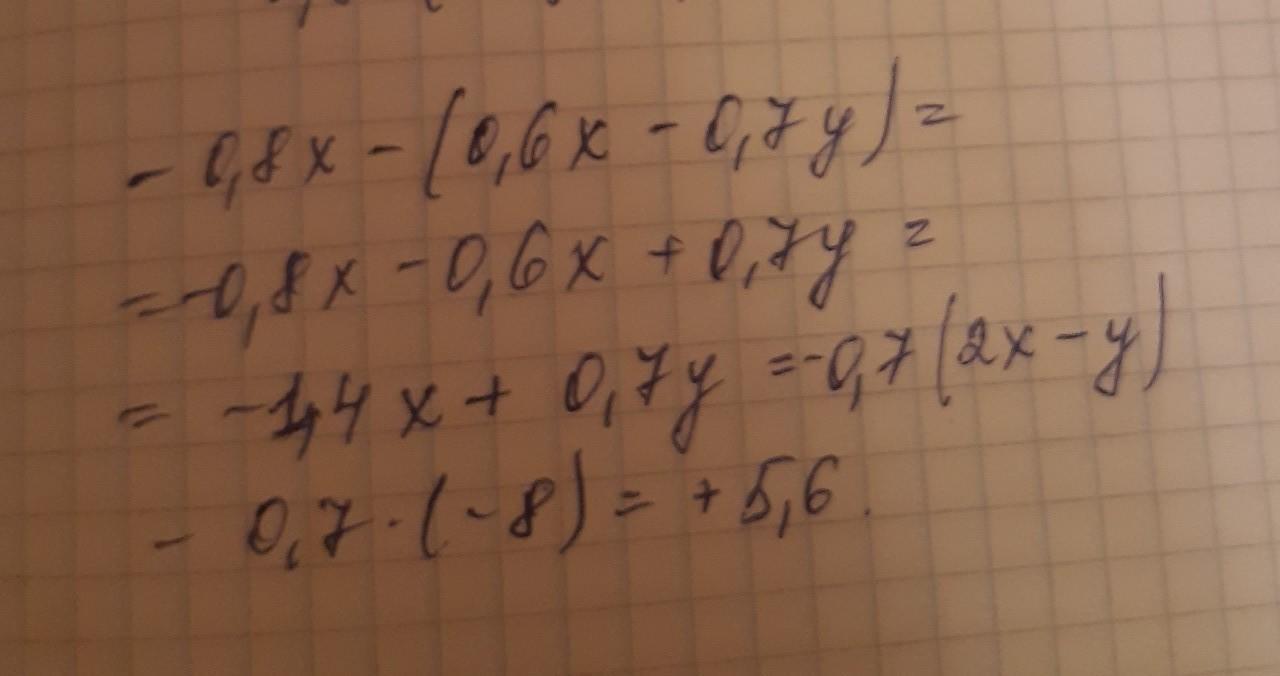 - 0,8x - (0,6x - 0,7y) =
= -0,8x - 0,6x + 0,7y =
= -1,4x + 0,7y = -0,7(2x - y)
- 0,7 · (-8) = + 5,6.